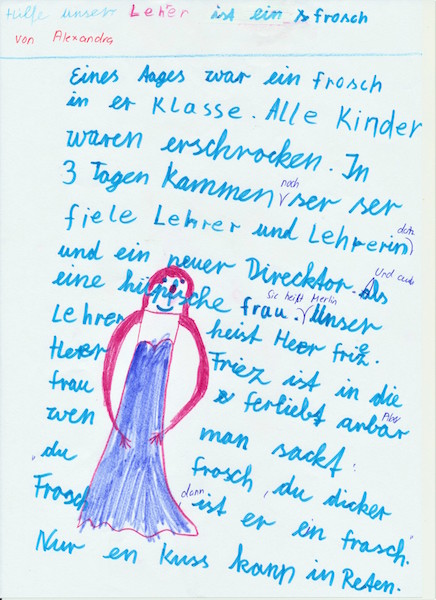 Hilfe unser Leher ist ein frosch
von Alexandra
Eines Tages war ein frosch
in er Klasse. Alle Kinder
waren erschrocken. In
3 Tagen kammen noch ser ser
fiele Lehrer und Lehrerin dazu
und ein neuer Direcktor. Und auch
eine hüpsche frau. Sie heißt Merlin Unser
Lehrer heist Heer friz.
Heer Friez ist in die
frau ferliebt aber
wen man sackt:
"du frosch, du dicker
Frosch" dann ist er ein frosch.
Nur en Kuss kann in Reten.